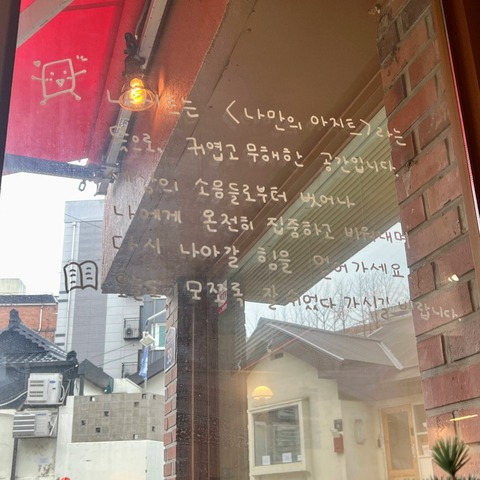 트는 <나만의 아지트>라는
뜻으로, 귀엽고 무해한 공간입니다.
소음들로부터 벗어나
나에게 온전히 집중하고 비워내며
다시 나아갈 힘을 얻어가세요
모쪼록 잘 쉬었다 가시기 바랍니다.